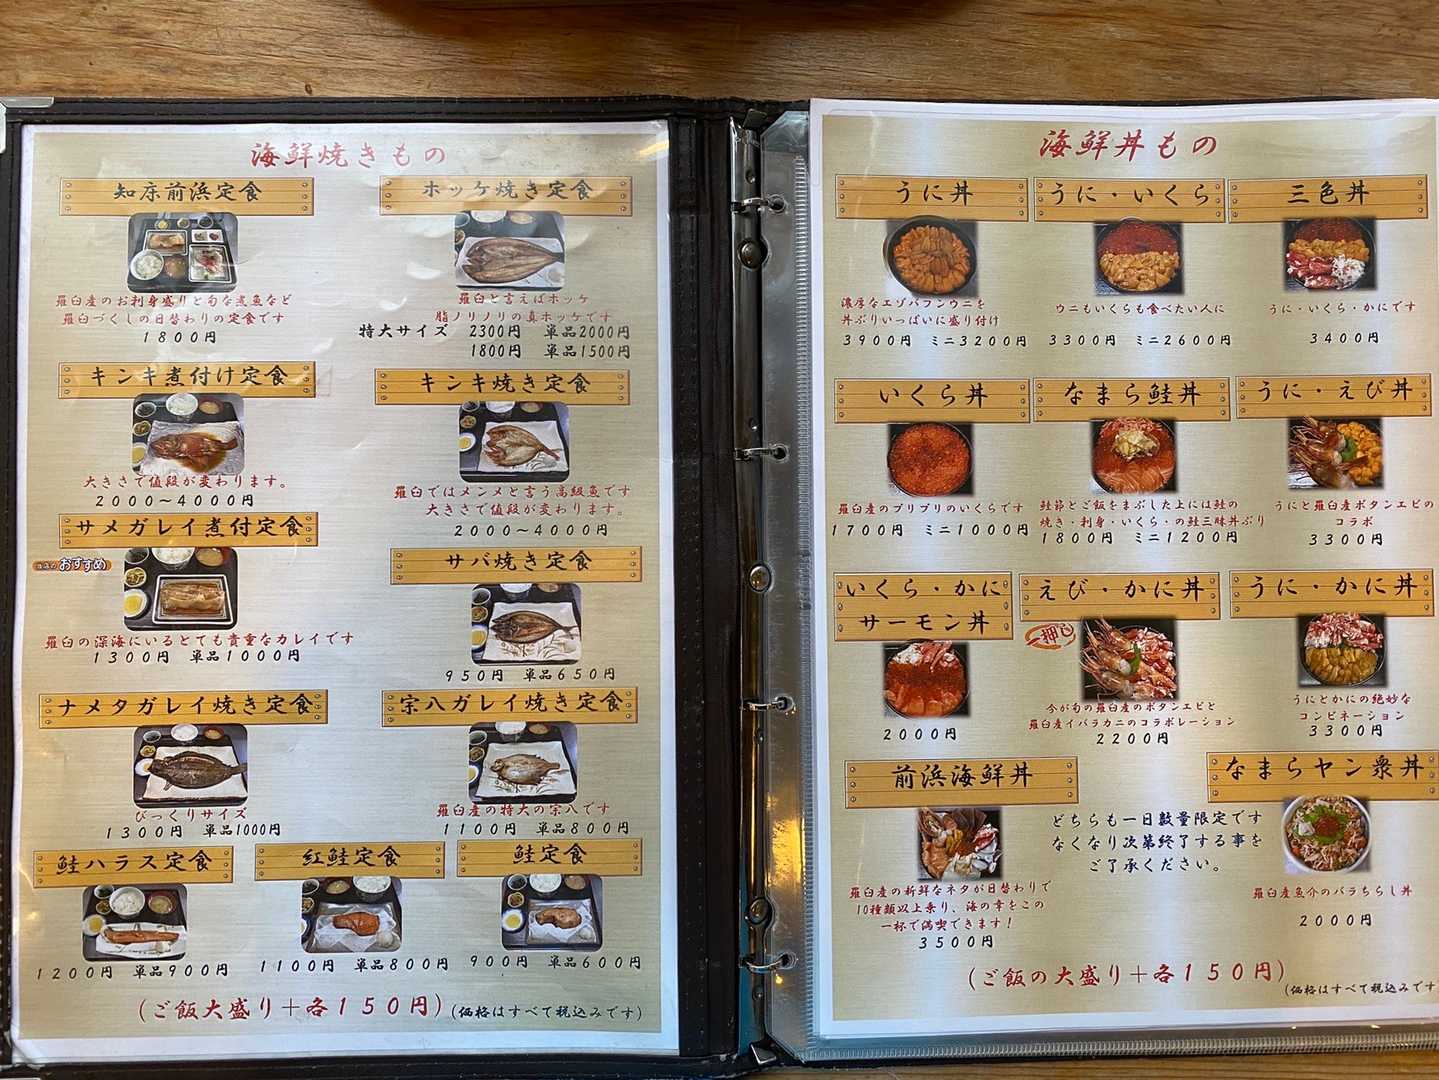 海鮮焼きもの
知床前浜定食
羅臼産のお刺身盛りと旬な煮魚など
羅臼づくしの日替わりの定食です
1800円
ホッケ焼き定食
羅臼と言えばホッケ
脂ノリノリの真ホッケです
特大サイズ 2300円 単品2000円
1800円 単品1500円
キンキ煮付け定食
大きさで値段が変わります。
2000〜4000円
キンキ焼き定食
羅臼ではメンメと言う高級魚です
大きさで値段が変わります。
2000〜4000円
サメガレイ煮付定食
当店のおすすめ
羅臼の深海にいるとても貴重なカレイです
1300円 単品1000円
サバ焼き定食
950円 単品650円
ナメタガレイ焼き定食
びっくりサイズ
1300円 単品1000円
宗八ガレイ焼き定食
羅臼産の特大の宗八です
1100円 単品800円
鮭ハラス定食
1200円 単品900円
紅鮭定食
1100円 単品800円
鮭定食
900円 単品600円
(ご飯大盛り+各150円)(価格はすべて税込みです)
海鮮丼もの
うに丼
濃厚なエゾバフンウニを
丼ぶりいっぱいに盛り付け
3900円 ミニ3200円
うに・いくら
ウニもいくらも食べたい人に
3300円 ミニ2600円
三色丼
うに・いくら・かにです
3400円
いくら丼
羅臼産のプリプリのいくらです
1700円 ミニ1000円
なまら鮭丼
鮭節とご飯をまぶした上には鮭の
焼き・刺身・いくら・の鮭三昧丼ぶり
1800円 ミニ1200円
うに・えび丼
うにと羅臼産ボタンエビの
コラボ
3300円
いくら・かに
サーモン丼
2000円
えび・かに丼
一押し
今が旬の羅臼産のボタンエビと
羅臼産イバラカニのコラボレーション
2200円
うに・かに丼
うにとかにの絶妙な
コンビネーション
3300円
前浜海鮮丼
羅臼産の新鮮なネタが日替わりで
10種類以上乗り、海の幸をこの
一杯で満喫できます!
3500円
どちらも一日数量限定です
なくなり次第終了する事を
ご了承ください。
なまらヤン衆丼
羅臼産魚介のバラちらし丼
2000円
(ご飯の大盛り+各150円)
(価格はすべて税込みです